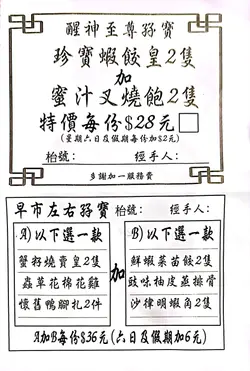 醒神至尊孖寶
珍寶蝦餃皇2隻
加
蜜汁叉燒飽2隻
特價每份$28元□
(星期六日及假期每份加$2元)
枱號: 經手人:
多謝加一服務費
早市左右孖寶 枱號: 經手人:
A)以下選一款
蟹籽燒賣皇2隻
蟲草花棉花雞
懷舊鴨腳札2件
加
B)以下選一款
鮮蝦菜苗餃2隻
豉味柚皮蒸排骨
沙律明蝦角2隻
A加B每份$36元(六日及假期加6元)